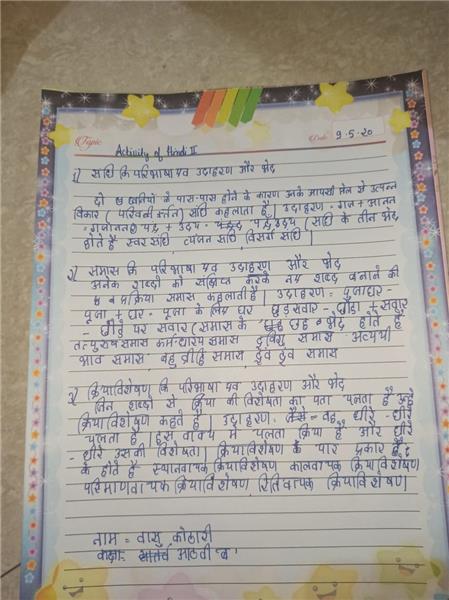 Topic Date 9-5-20
Activity of Hindi II
1) संधि कि परिभाषा एव उदाहरण और भेद
दो ध्वनियों के पास-पास होने के कारण उनके आपसी मेल से उत्पन्न
विकार (परिवर्तन) संधि कहलाता है | उदाहरण - गज + आनन
= गजानन चंद्र + उदय - चंद्रोदय (संधि के तीन भेद
होते है स्वर संधि व्यंजन संधि विसर्ग संधि |
2) समास कि परिभाषा एव उदाहरण और भेद
अनेक शब्दो को संक्षिप्त करके नए शब्द बनाने की
प्रक्रिया समास कहलाती है | उदाहरण = पूजाघर -
पूजा + घर - पूजा के लिए घर घुड़सवार - घोड़ा + सवार
- घोड़े पर सवार (समास के छह भेद होते है
तत्पुरुष समास कर्मधारय समास द्विगु समास अव्ययी
भाव समास बहुव्रीहि समास द्वंद्व समास
3) क्रियाविशेषण कि परिभाषा एव उदाहरण और भेद
जिन शब्दो से क्रिया की विशेषता का पता चलता है उन्हे
क्रियाविशेषण कहते है | उदाहरण: जैसे = वह धीरे - धीरे
चलता है | इस वाक्य मे चलता क्रिया है और धीरे
- धीरे उसकी विशेषता | क्रियाविशेषण के चार प्रकार
के होते है स्थानवाचक क्रियाविशेषण कालवाचक क्रियाविशेषण
परिमाणवाचक क्रियाविशेषण रितिवाचक क्रियाविशेषण |
नाम = वासु कोठारी
कक्षा- आठवी 'ब'